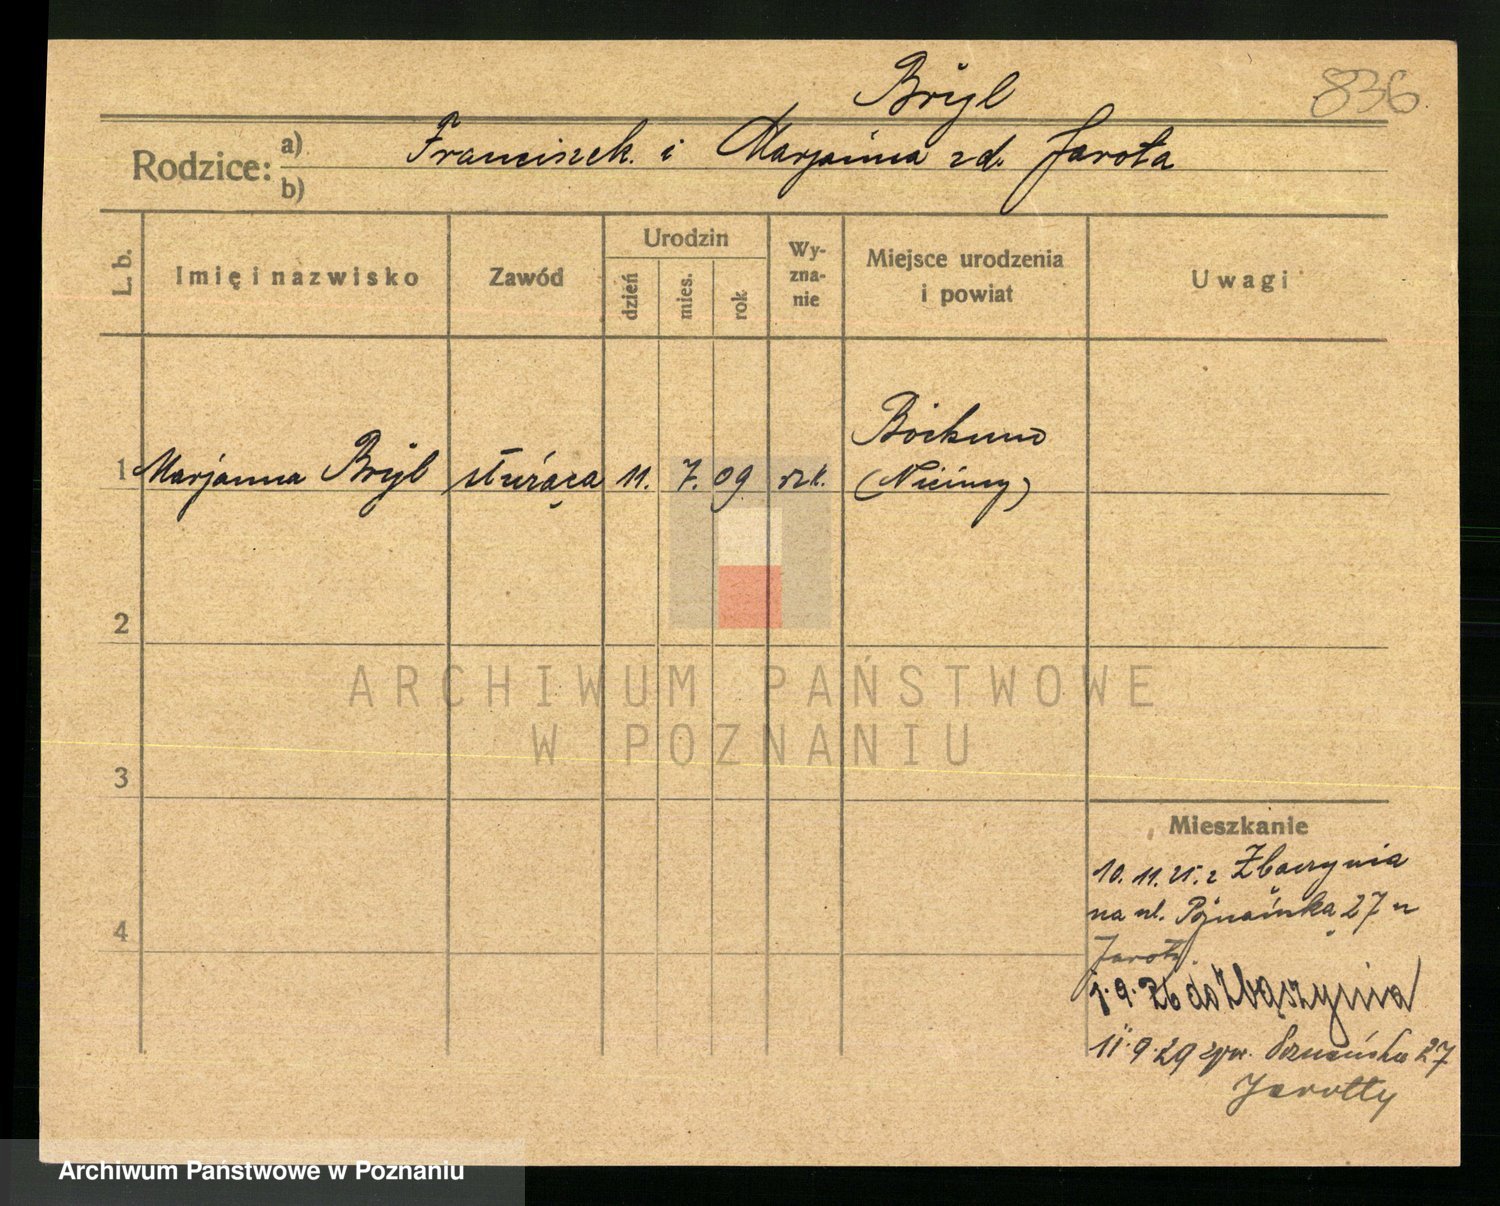 Bryl
836
Rodzice: a) Franciszek i Marjanna zd. Jarota
b)
L. b.
Imię i nazwisko
Zawód
Urodzin
dzień
mies.
rok
Wy-
zna-
nie
Miejsce urodzenia
i powiat
Uwagi
1 Marjanna Bryl służąca 11. 7. 09 rzk. Bochum
(Niemcy)
2
ARCHIWUM PAŃSTWOWE
W POZNANIU
3
4
Mieszkanie
10. 11. 25. z Zbączynia
na ul. Poznańską 27 u
Jaroty.
1. 9. 26 do Zbąszynia
11. 9. 29 spr. Poznańska 27
Jarotty
Archiwum Państwowe w Poznaniu